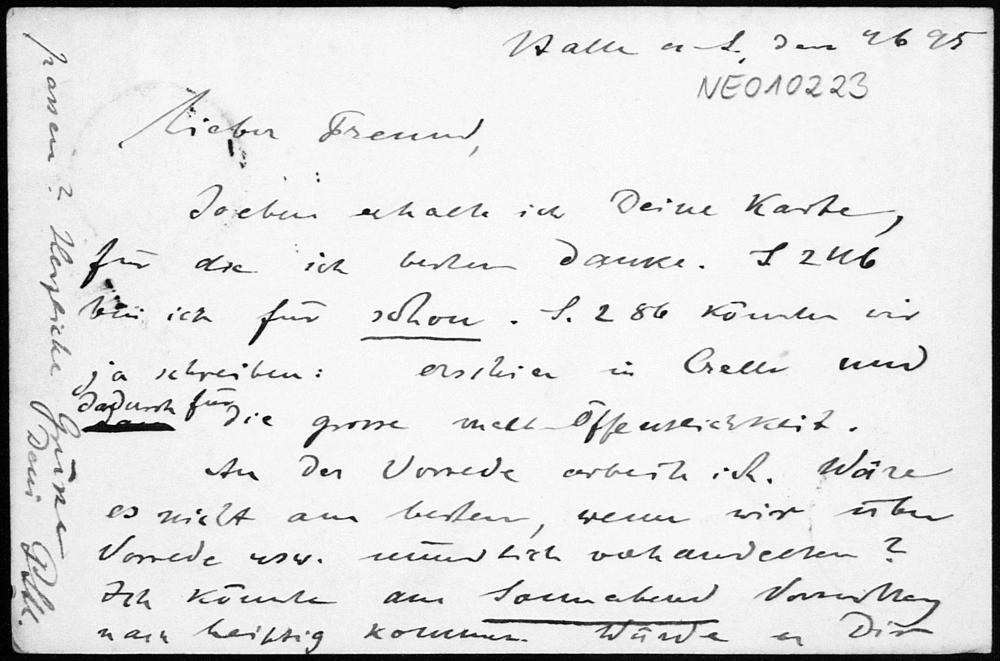 Halle a. S. den 4 6 95
NE010223
Lieber Freund,
Soeben erhalte ich Deine Karte,
für die ich bestens danke. S 246
bin ich für schon. S. 286 könnten wir
ja schreiben: erschien in Crelle und
dadurch für
die grosse math Öffentlichkeit.
An der Vorrede arbeite ich. Wäre
es nicht am besten, wenn wir über
Vorrede usw. mündlich verhandelten?
Ich könnte am Sonnabend Vormittag
nach Leipzig kommen. Würde es Dir
passen? Herzliche Grüsse
Dein